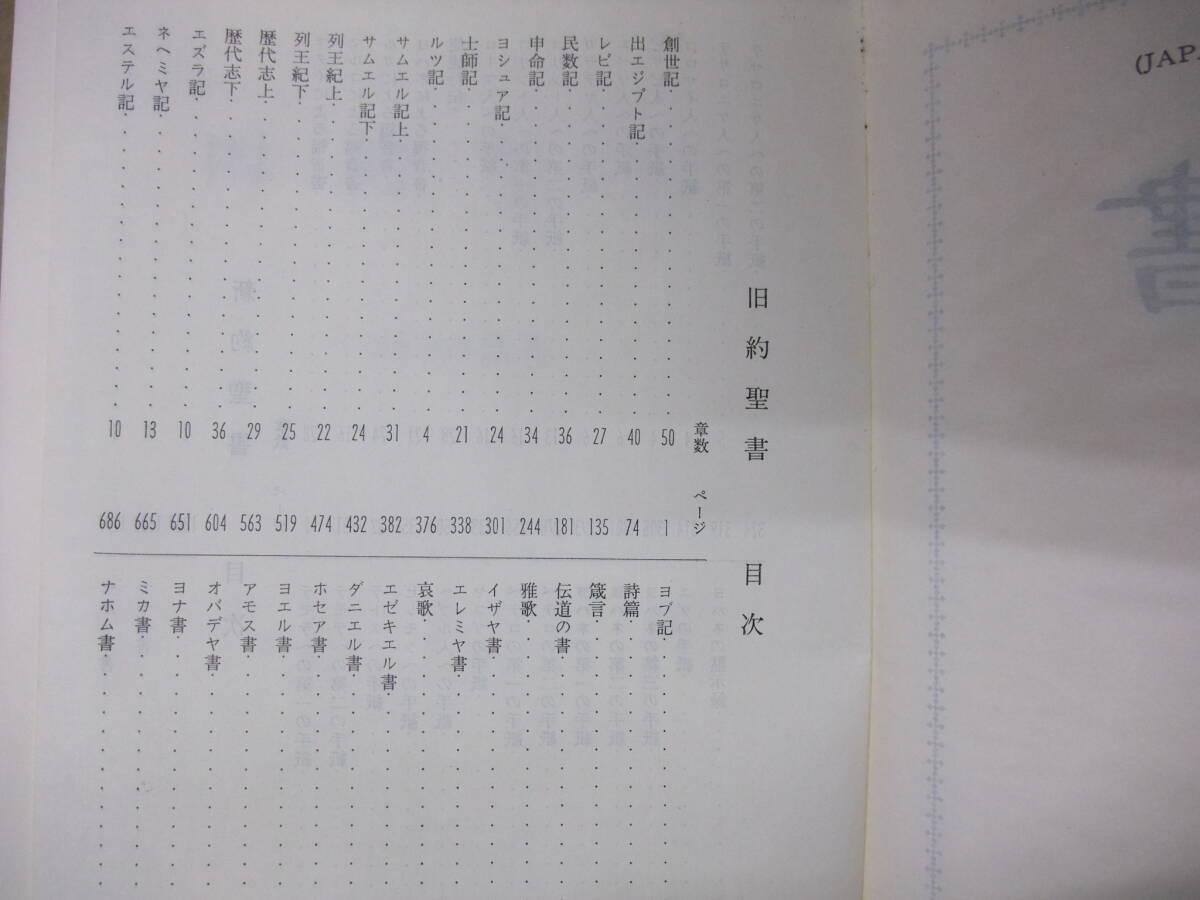 (JAPA
書
旧約聖書 目次
章数 ページ
創世記 50 1
出エジプト記 40 74
レビ記 27 135
民数記 36 181
申命記 34 244
ヨシュア記 24 301
士師記 21 338
ルツ記 4 376
サムエル記上 31 382
サムエル記下 24 432
列王紀上 22 474
列王紀下 25 519
歴代志上 29 563
歴代志下 36 604
エズラ記 10 651
ネヘミヤ記 13 665
エステル記 10 686
ヨブ記
詩篇
箴言
伝道の書
雅歌
イザヤ書
エレミヤ書
哀歌
エゼキエル書
ダニエル書
ホセア書
ヨエル書
アモス書
オバデヤ書
ヨナ書
ミカ書
ナホム書